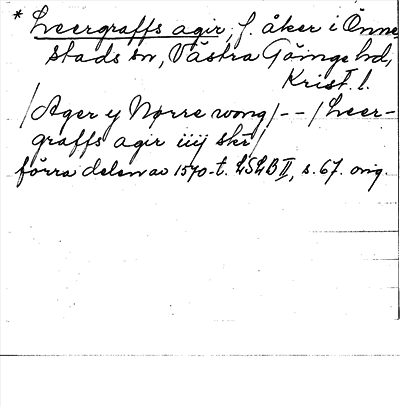 * Leergraffs agir, f. åker i Önne-
stads sn, Västra Göinge hd,
Krist. l.
/Ager y Nørre wong/ -- /Leer-
graffs agir iiij skr/
förra delen av 1570-t. LSLB II, s. 67. orig.